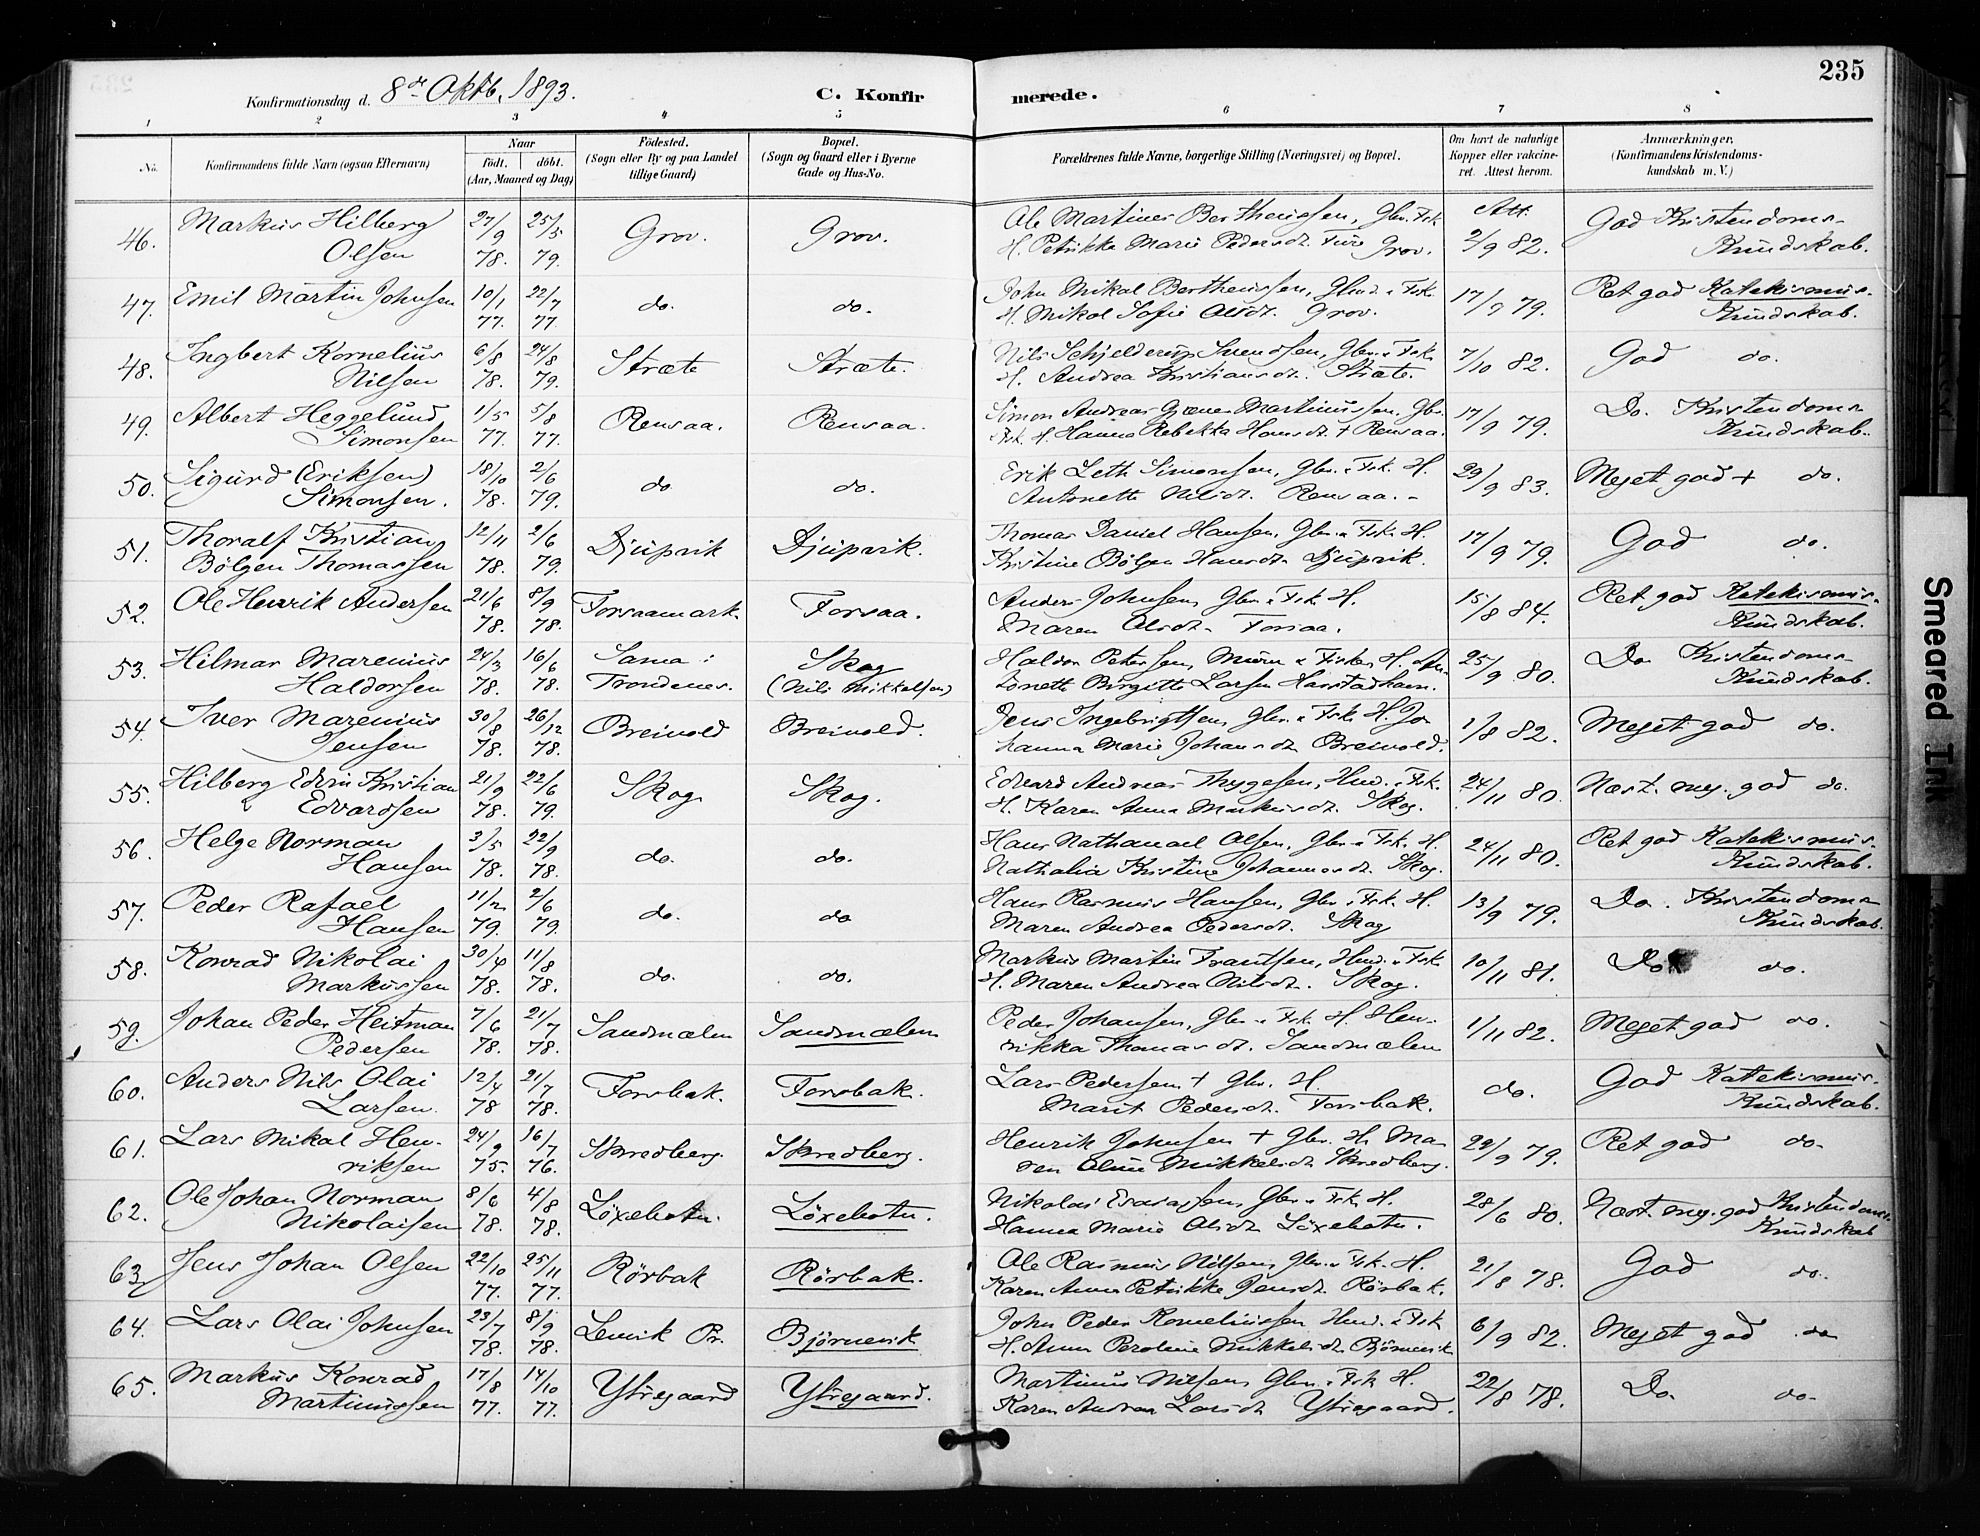 235
Konfirmationsdag d. 8de Oktb. 1893.
C. Konfirmerede.
1 2 3 4 5 6 7 8
No. Konfirmandens fulde Navn (ogsaa Efternavn) Naar født. døbt. (Aar, Maaned og Dag) Fødested. (Sogn eller By og paa Landet tillige Gaard) Bopæl. (Sogn og Gaard eller i Byerne Gade og Hus-No. Forældrenes fulde Navne, borgerlige Stilling (Næringsvei) og Bopæl. Om havt de naturlige Kopper eller vaccineret. Attest herom. Anmærkninger, (Konfirmandens Kristendomskundskab m. V.)
46. Markus Hilberg Olsen 27/9 78. 25/5 79. Grov. Grov. Ole Martines Bertheussen, Gbr. Fsk. H. Petrikke Marie Pedersdt. Grov. Att. 2/9 82. God Kristendoms-Kundskab.
47. Emil Martin Johnsen 10/1 77. 22/7 77. do. do. John Mikal Bertheussen, Hmd. & Fsk. H. Nikol. Sofie Olsdt. Grov. 17/9 79. Ret god Katekismus-Kundskab.
48. Ingbert Kornelius Nilsen 6/8 78. 24/8 79. Stræte Stræte. Nils Schjelderup Svendsen, Gbr. & Fsk. H. Andrea Kristiansdt. Stræte. 7/10 82. God do.
49. Albert Heggelund Simonsen 1/5 77. 5/8 77. Rensaa. Rensaa. Simon Andreas Martinussen. Gbr. Fsk. H. Hanna Rebekka Hansdt. + Rensaa. 17/9 79. Do. Kristendoms-Kundskab.
50. Sigurd (Eriksen) Simonsen. 18/10 78. 2/6 79. do do. Erik Leth Simonsen, Gbr. & Fsk. H. Antonette Nilsdt. Rensaa. 29/9 83. Meget god + do.
51. Thoralf Kristian Bølgen Thomassen 12/11 78. 2/6 79. Djupvik Djupvik. Thomas Daniel Hansen, Gbr. & Fsk. H. Kristine Bølgen Hansdt. Djupvik. 17/9 79. God do.
52. Ole Henrik Andersen 21/6 78. 8/9 78. Forsaamark. Forsaa. Anders Johnsen, Gbr. & Fsk. H. Maren Olsdt. Forsaa. 15/8 84. Ret god Katekismus-Kundskab.
53. Hilmar Marenius Haldorsen 24/3 78. 16/6 78. Sama i Trondenes. Skog (Nils Mikkelsen) Haldor Petersen, Murer & Fisker, H. Antonette Birgitte Larsen Harstadhavn. 25/9 80. Do Kristendoms-Kundskab.
54. Iver Marenius Jensen 30/8 78. 26/12 78. Breivold Breivold. Jens Ingebrigtsen, Gbr. & Fsk. H. Johanna Marie Johansdt. Breivold. 1/8 82. Meget god do.
55. Hilberg Edvin Kristian Edvardsen 21/9 78. 22/6 79. Skog Skog. Edvard Andreas Thygesen, Hmd. & Fsk. H. Karen Anna Markusdt. Skog. 24/11 80. Næst. meg. god do.
56. Helge Norman Hansen 3/5 78. 22/9 78. do. do. Hans Nathanael Olsen, Gbr. & Fsk. H. Nathalia Kristine Johannesdt. Skog. 24/11 80. Ret god Katekismus-Kundskab.
57. Peder Rafael Hansen 11/2 79. 2/6 79. do. do Hans Rasmus Hansen, Gbr. & Fsk. H. Maren Andrea Pedersdt. Skog 13/9 79. Do. Kristendoms-Kundskab.
58. Konrad Nikolai Markussen 30/4 78. 11/8 78. do. do. Markus Martin Frantsen, Hmd. & Fsk. H. Maren Andrea Nilsdt. Skog. 10/11 81. Do do.
59. Johan Peder Heitman Pedersen 7/6 78. 21/7 78. Sandmælen Sandmælen Peder Johansen, Gbr. & Fsk. H. Henrikka Thomasdt. Sandmælen 1/11 82. Meget god do.
60. Anders Nils Olai Larsen. 12/4 78 21/7 78. Forsbak. Forsbak. Lars Pedersen + Gbr. H. Marit Pedersdt. Forsbak. do. God Katekismus-Kundskab.
61. Lars Mikal Henriksen 24/9 75. 16/7 76. Skredberg. Skredberg. Henrik Johnsen + Gbr. H. Maren Oline Mikkelsdt. Skredberg. 29/9 79. Ret god do-
62. Ole Johan Norman Nikolaisen 8/6 78. 4/8 78. Løxebotn. Løxebotn. Nikolai Esaiassen, Gbr. & Fsk. H. Hanna Marie Olsdt. Løxebotn. 28/6 80. Næst. meg. god Kristendoms-Kundskab
63. Jens Johan Olsen 22/10 77. 25/11 77. Rørbak Rørbak. Ole Rasmus Nilsen, Gbr. & Fsk. H. Karen Anna Petrikke Jensdt. Rørbak. 21/8 78. God do.
64. Lars Olai Johnsen 23/7 78. 8/9 78. Lenvik Pr. Bjørnevik John Peder Korneliussen Hmd. & Fsk H. Anna Peroline Mikkelsdt. Bjørnevik 6/9 82. Meget god do
65. Markus Konrad Martinussen 17/8 77. 14/10 77. Ytregaard Ytregaard. Martinus Nilsen, Gbr. & Fsk. H. Karen Andrea Larsdt. Ytregaard. 22/8 78. Do. do-
Smeared Ink